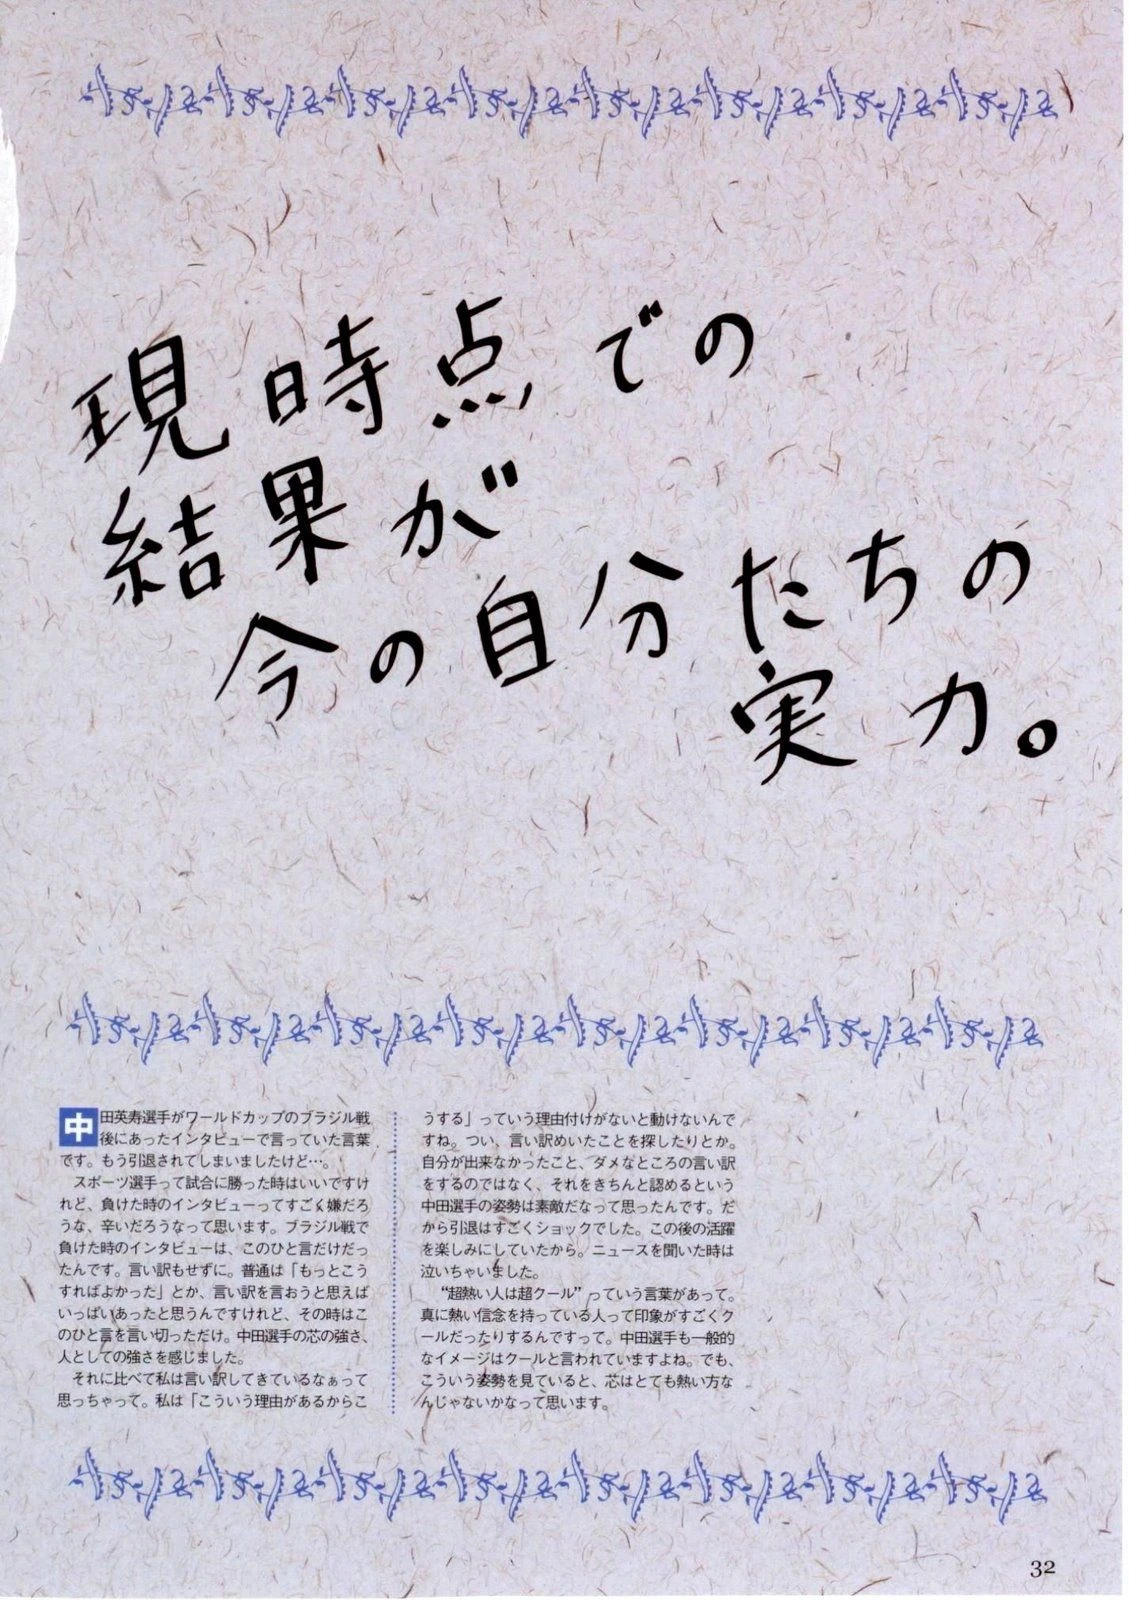 現時点での
結果が
今の自分たちの
実力。
中田英寿選手がワールドカップのブラジル戦
後にあったインタビューで言っていた言葉
です。もう引退されてしまいましたけど…。
スポーツ選手って試合に勝った時はいいですけ
れど、負けた時のインタビューってすごく嫌だろ
うな、辛いだろうなって思います。ブラジル戦で
負けた時のインタビューは、このひと言だけだっ
たんです。言い訳もせずに。普通は「もっとこう
すればよかった」とか、言い訳を言おうと思えば
いっぱいあったと思うんですけれど、その時はこ
のひと言を言い切っただけ。中田選手の芯の強さ、
人としての強さを感じました。
それに比べて私は言い訳してきているなぁって
思っちゃって。私は「こういう理由があるからこ
うする」っていう理由付けがないと動けないんで
すね。つい、言い訳めいたことを探したりとか。
自分が出来なかったこと、ダメなところの言い訳
をするのではなく、それをきちんと認めるという
中田選手の姿勢は素敵だなって思ったんです。だ
から引退はすごくショックでした。この後の活躍
を楽しみにしていたから。ニュースを聞いた時は
泣いちゃいました。
“超熱い人は超クール”っていう言葉があって。
真に熱い信念を持っている人って印象がすごくク
ールだったりするんですって。中田選手も一般的
なイメージはクールと言われていますよね。でも、
こういう姿勢を見ていると、芯はとても熱い方な
んじゃないかなって思います。
32